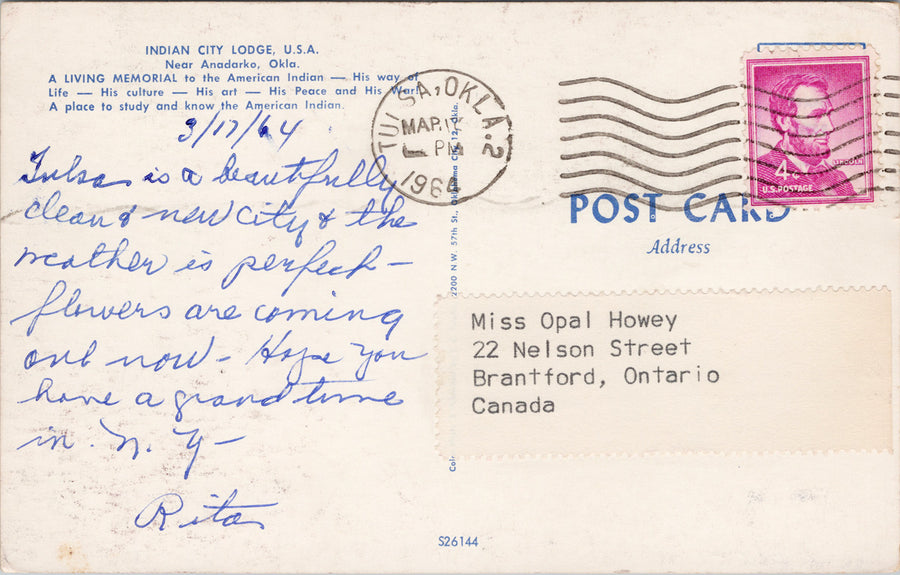 INDIAN CITY LODGE, U.S.A.
Near Anadarko, Okla.
A LIVING MEMORIAL to the American Indian — His way of
Life — His culture — His art — His Peace and His War!
A place to study and know the American Indian.
3/17/64
Tulsa is a beautifully
clean & new city & the
weather is perfect –
flowers are coming
out now – Hope you
have a grand time
in N. Y –
Rita
TULSA, OKLA. 2
MAR 17
PM
1964
LINCOLN
4¢
U.S. POSTAGE
POST CARD
Address
2200 N.W. 57th St., Oklahoma City 12, Okla.
Miss Opal Howey
22 Nelson Street
Brantford, Ontario
Canada
S26144